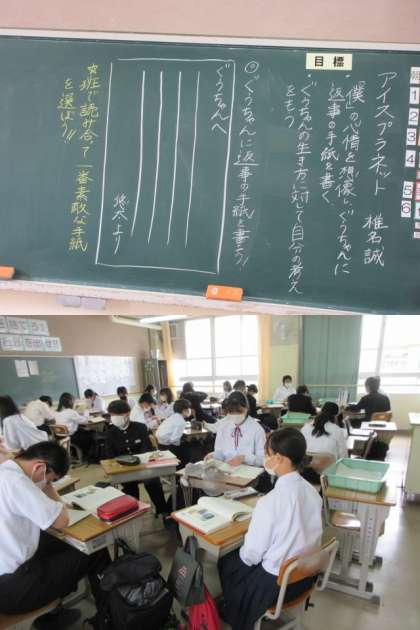 アイスプラネット　椎名誠
目標
・「僕」の心情を想像し、ぐうちゃんに
返事の手紙を書く。
・ぐうちゃんの生き方に対して自分の考え
をもつ
◎ぐうちゃんに返事の手紙を書こう!
ぐうちゃんへ
悠太より
☆班で読み合って一番素敵な手紙
を選ぼう!!
1
2
3
4
5
6